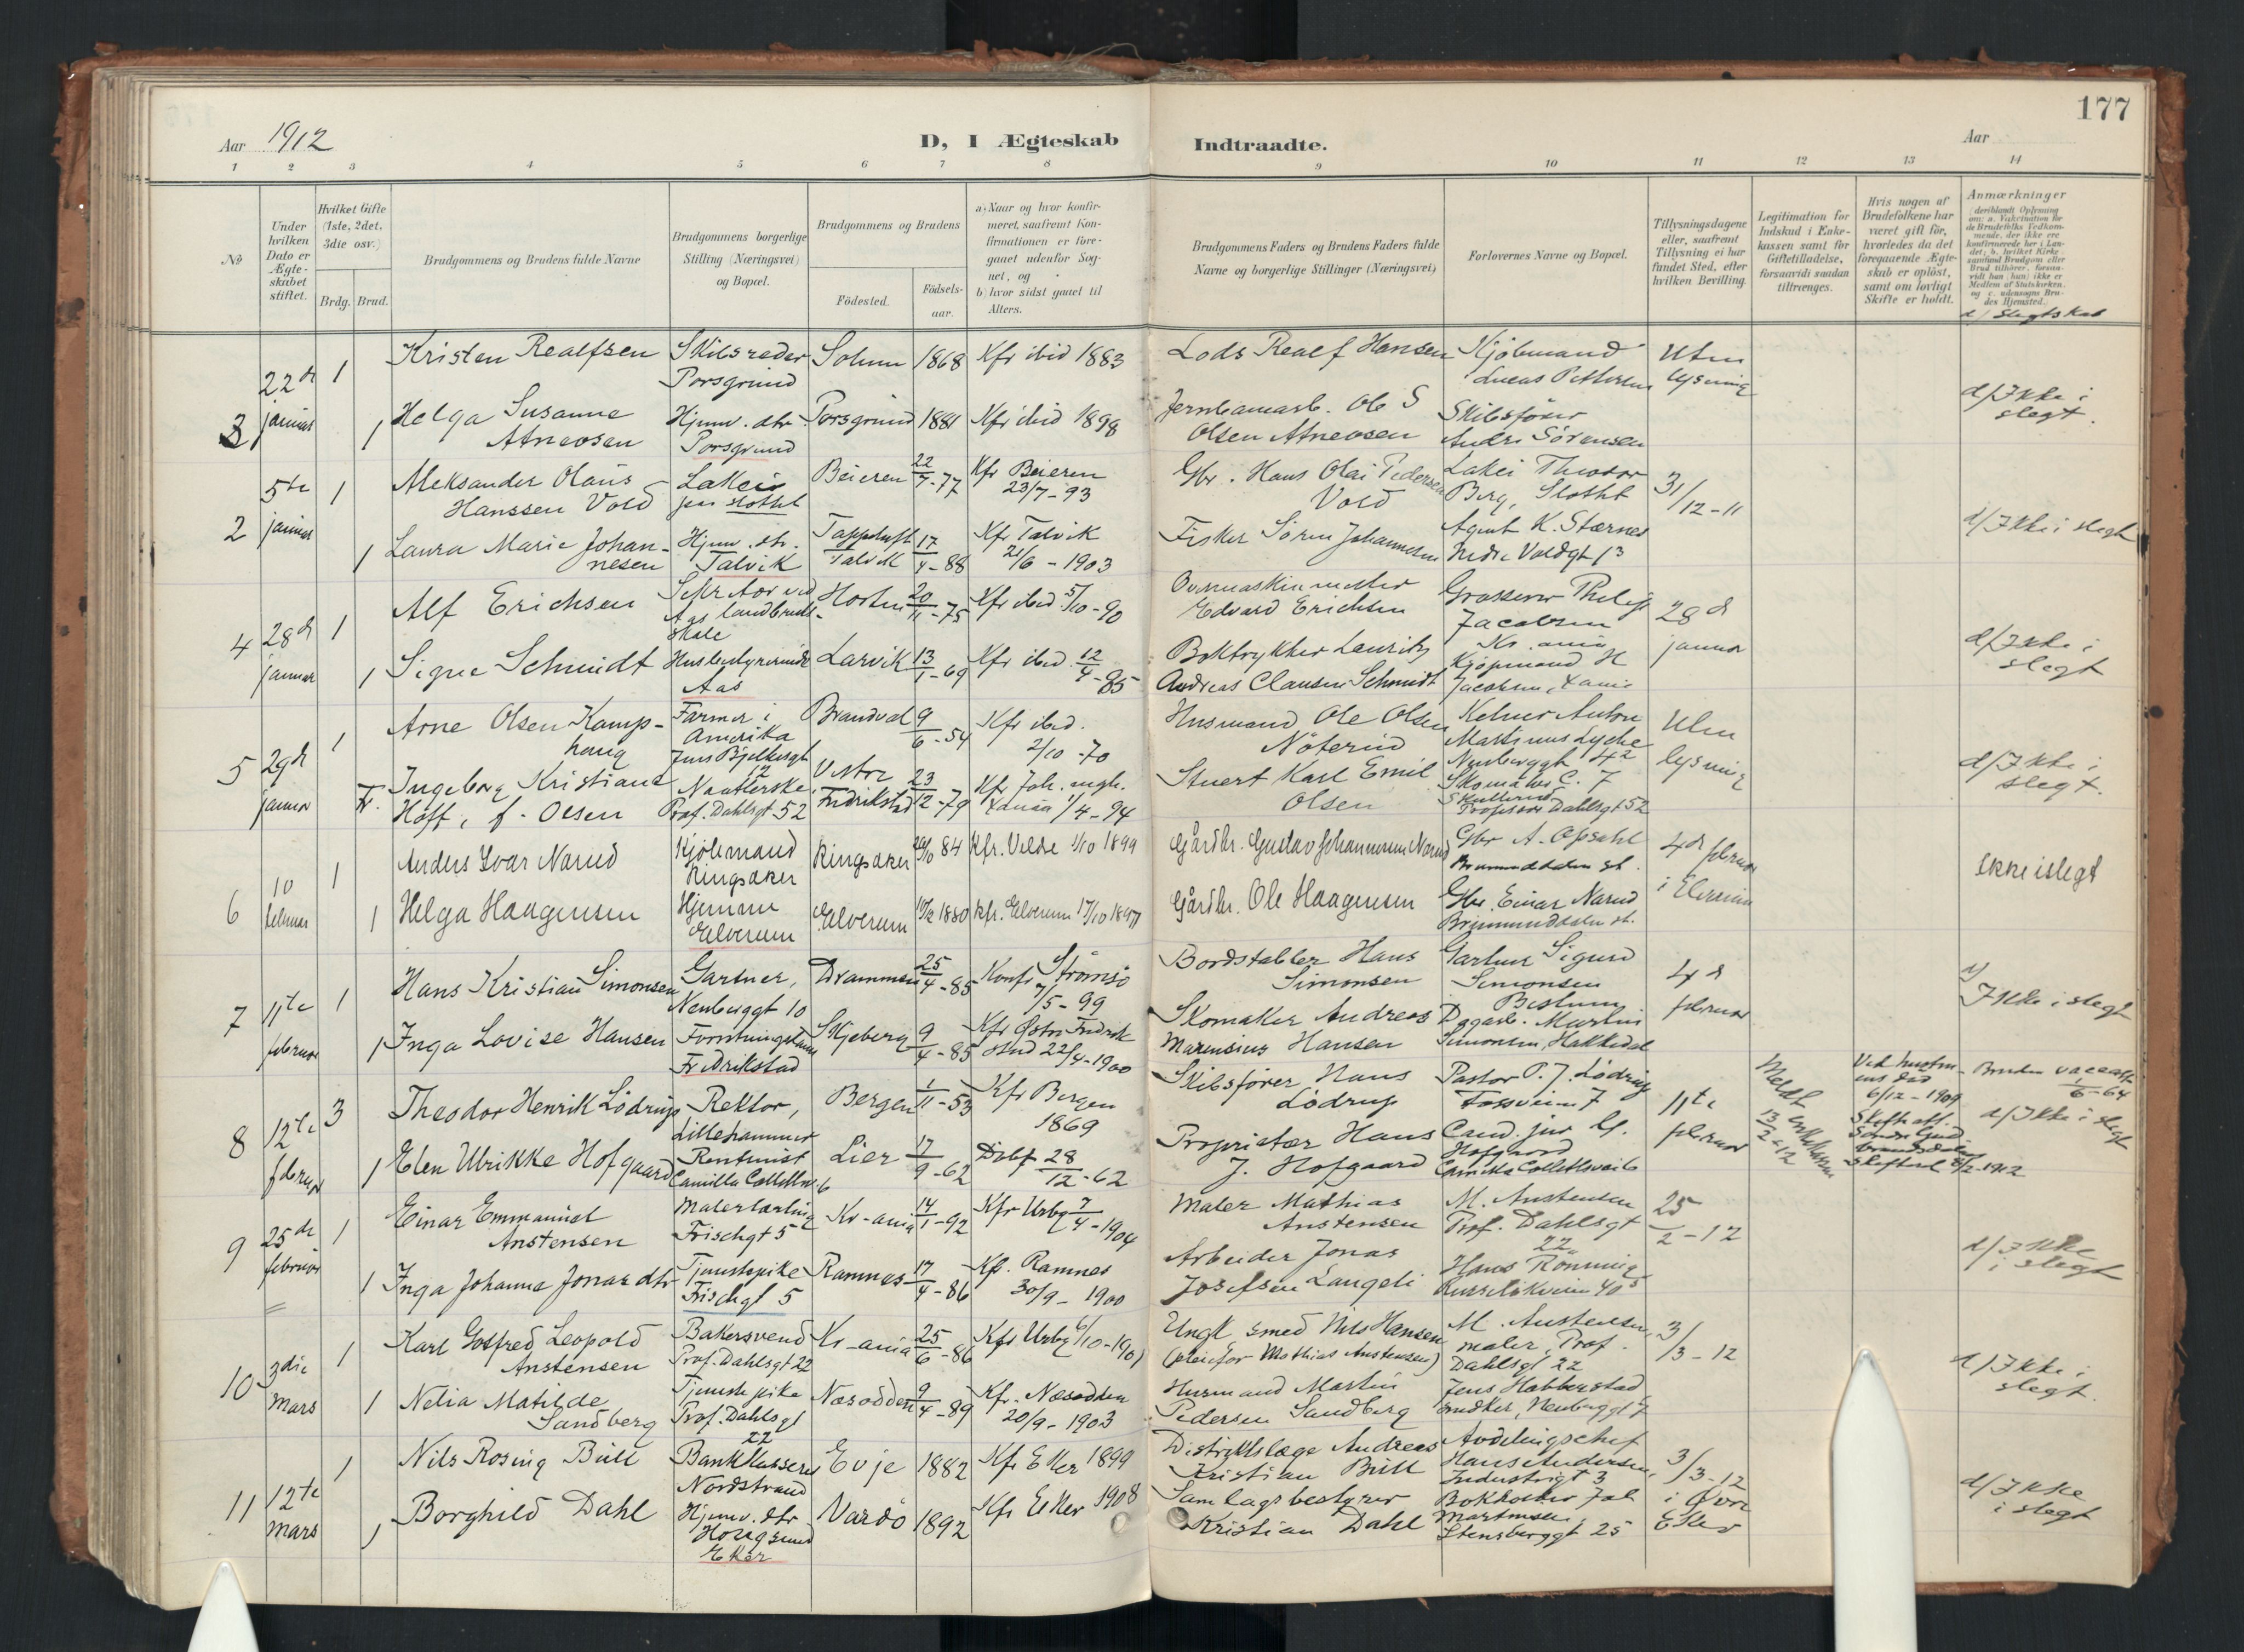 177
Aar 1912
D, I Ægteskab Indtraadte.
Aar
1 2 3 4 5 6 7 8 9 10 11 12 13 14
No
Under hvilken Dato er Ægteskabet stiftet.
Hvilket Gifte (1ste, 2det, 3die osv.)
Brdg. Brud.
Brudgommens og Brudens fulde Navne
Brudgommens borgerlige Stilling (Næringsvei) og Bopæl.
Brudgommens og Brudens
Födested.
Födsels-aar.
a) Naar og hvor konfir-
meret, saafremt Kon-
firmationen er fore-
gaaet udenfor Sog-
net, og
b) hvor sidst gaaet til
Alters.
Brudgommens Faders og Brudens Faders fulde
Navne og borgerlige Stillinger (Næringsvei)
Forlovernes Navne og Bopæl.
Tillysningsdagene
eller, saafremt
Tillysning ei har
fundet Sted, efter
hvilken Bevilling.
Legitimation for
Indskud i Enke-
kassen samt for
Giftetilladelse,
forsaavidt saadan
tiltrænges.
Hvis nogen af
Brudefolkene har
været gift før,
hvorledes da det
foregaaende Ægte-
skab er opløst,
samt om lovligt
Skifte er holdt.
Anmærkninger
d/ Slegtskab
3
22de januar
1
Kristen Realfsen
Skibsreder
Porsgrund
Solum
1868
Kfr ibid 1883
Lods Realf Hansen
Kjøbmand
Lucas Pettersen
Uten
lysning
d/ Ikke i
slegt.
1
Helga Susanne
Atneosen
Hjemv. dtr
Porsgrund
Porsgrund
1881
Kfr ibid 1898
Jernbanearb. Ole S
Olsen Atneosen
Skibsfører
Andr. Sørensen
2
5te januar
1
Aleksander Olaus
Hanssen Vold
Lakei
paa slottet
Beieren
22/7-77
Kfr Beieren
23/7-93
Gbr. Hans Olai Pedersen
Vold
Lakei Theodor
Berg, Slottet
31/12-11
d/ Ikke i slegt
1
Laura Marie Johan-
nesen
Hjemv. dtr.
Talvik
Talvik
17/4-88
Kfr Talvik
21/6-1903
Fisker Sören Johannesen
Agent K. Stærnes
Nedre Voldgt 13
4
28de januar
1
Alf Erichsen
Sekretær ved
Aas landbruks-
skole
Horten
20/11-75
Kfr ibid 5/10-90
Overmaskinmester
Edvard Erichsen
Grosserer Philip
Jacobsen
Kr.ania
28de
januar
d/ Ikke i
slegt
1
Signe Schmidt
Husbestyrerinde
Aas
Larvik
13/1-69
Kfr ibid. 12/4-85
Boktrykker Lauritz
Andreas Clausen Schmidt
Kjøpmand H
Jacobsen, Xania
5
29de januar
1
Arne Olsen Kamp-
haug
Farmer i
Amerika
Jens Bjelkesgt
12
Brandval
9/6-54
Kfr ibid.
2/10-70
Husmand Ole Olsen
Nöterud
Kelner Anton
Martinus Lycke
Neuberggt 42
Uten
lysning
d/ Ikke i
slegt.
Fr.
Ingeborg Kristiane
Hoff, f. Olsen
Naatlerske,
Prof. Dahlsgt 52
Vestre
Fredrikstad
23/12-79
Kfr Joh. mgh.
Xania 1/4-94
Stuert Karl Emil
Olsen
Skomaker C. J
Skullerud
Professor Dahlsgt 52
6
10 februar
1
Anders Ivar Narud
Kjöbmand
Ringsaker
Ringsaker
20/10 84
Kfr. Velde 1/10 1899
Gårdbr. Gustav Johannesen Narud
Gbr A. Opsahl
Brummunddalen st.
4de februar
i Elverum
ikke i slegt
1
Helga Haagensen
Hjemme
Elverum
Elverum
10/12 1880
kfr. Elverum 17/10 1897
Gårdbr. Ole Haagensen
Gbr. Einar Narud
Brummunddalen st.
7
11te februar
1
Hans Kristian Simonsen
Gartner,
Neuberggt 10
Drammen
25/4-85
Konfr Strømsö
7/5-99
Bordstabler Hans
Simonsen
Gartner Sigurd
Simonsen
Bestum
4de
februar
d/
Ikke i slegt
1
Inga Lovise Hansen
Forretningsdame
Fredrikstad
Skjeberg
9/4-85
Kfr Østre Fredrik
stad 22/4-1900
Skomaker Andreas
Marensius Hansen
Dagarb. Martin
Simonsen, Hakkedal
8
12te februar
3
Theodor Henrik Lödrup
Rektor,
Lillehammer
Bergen
1/11-53
Kfr Bergen
1869
Skibsfører Hans
Lödrup
Pastor P. J. Lödrup
Fossveien 7
11te
februar
Meldt enkekassen
13/2-12
Ved hustru-
ens död
6/12-1909
Skifte 8/2-1912
Bruden vaccert
1/6-64
d/ Ikke i slegt
1
Elen Ulrikke Hofgaard
Rentenist
Camilla Collettsv. 6
Lier
17/9-62
Döbt 28/12-62
Proprietær Hans
J. Hofgaard
Cand. jur G.
Hofgaard
Camilla Collettsvei 6
9
25de februar
1
Einar Emmanuel
Anstensen
Malerlærling
Frischgt 5
Kr-ania
14/1-92
Kfr Urbg 7/4-1904
Maler Mathias
Anstensen
M. Anstensen
Prof. Dahlsgt
22
25/2-12
d/ Ikke
i slegt
1
Inga Johanne Jonasdtr
Tjenestepike
Frischgt 5
Ramnes
17/4-86
Kfr. Ramnes
30/9-1900
Arbeider Jonas
Josefsen Langeli
Hans Rønning
Russeløkveien 40
10
3die mars
1
Karl Gotfred Leopold
Anstensen
Bakersvend
Prof. Dahlsgt 22
Kr-ania
25/6-86
Kfr Urbg 6/10-1901
Ungk. smed Nils Hansen
(pleiefar Mathias Anstensen)
M. Anstensen,
maler, Prof.
Dahlsgt 22
3/3-12
d/ Ikke i
slegt.
1
Nelia Matilde
Sandberg
Tjenestepike
Prof. Dahlsgt
22
Næsodden
9/4-89
Kfr. Næsodden
20/9-1903
Husmand Martin
Pedersen Sandberg
Jens Habberstad,
snedker, Neuberggt 7
11
12te mars
1
Nils Rosing Bull
Bankkasserer
Nordstrand
Evje
1882
Kfr Eker 1899
Distriktslæge Andreas
Kristian Bull
Avdelingschef
Hans Andersen,
Industrigt 3
3/3-12
i Øvre
Eker
d/ Ikke
i slegt
1
Borghild Dahl
Hjemv. dtr
Hokksund
Eker
Vardö
1892
Kfr Eker 1908
Samlagsbestyrer
Kristian Dahl
Bokholder Joh
Martinsen,
Stensberggt 25